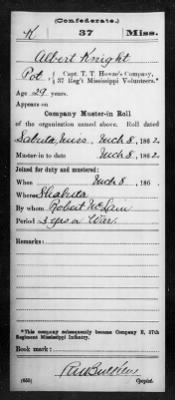 (Confederate.)
K 37 Miss.
Albert Knight
Pvt., Capt. T. T. Howze's Company,
37 Reg't Mississippi Volunteers.*
Age 29 years.
Appears on
Company Muster-in Roll
of the organization named above. Roll dated
Sabuta, Miss, Mch 8, 1862.
Muster-in to date Mch 8, 1862.
Joined for duty and mustered:
When Mch 8, 186 .
Where Shabuta
By whom Robert McLain
Period 3 yrs or War.
Remarks:
*This company subsequently became Company E, 37th
Regiment Mississippi Infantry.
Book mark:
(655) Copyist.